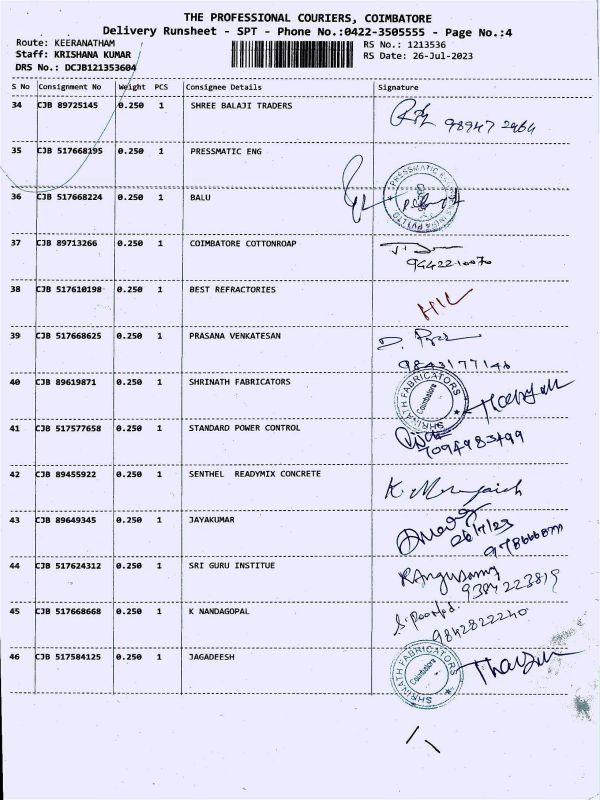 THE PROFESSIONAL COURIERS, COIMBATORE
Delivery Runsheet - SPT - Phone No.:0422-3505555 - Page No.:4
Route: KEERANATHAM
RS No.: 1213536
Staff: KRISHANA KUMAR
RS Date: 26-Jul-2023
DRS No.: DCJB121353604
S No Consignment No Weight PCS Consignee Details Signature
34 CJB 89725145 0.250 1 SHREE BALAJI TRADERS
98947 2964
35 CJB 517668195 0.250 1 PRESSMATIC ENG
36 CJB 517668224 0.250 1 BALU
37 CJB 89713266 0.250 1 COIMBATORE COTTONROAP
9442210070
38 CJB 517610198 0.250 1 BEST REFRACTORIES
39 CJB 517668625 0.250 1 PRASANA VENKATESAN
9843177146
40 CJB 89619871 0.250 1 SHRINATH FABRICATORS
SHRINATH FABRICATORS
Coimbatore
41 CJB 517577658 0.250 1 STANDARD POWER CONTROL
7094983499
42 CJB 89455922 0.250 1 SENTHEL READYMIX CONCRETE
43 CJB 89649345 0.250 1 JAYAKUMAR
26/7/23
44 CJB 517624312 0.250 1 SRI GURU INSTITUE
RAngusamy
9384223819
45 CJB 517668668 0.250 1 K NANDAGOPAL
9842822240
46 CJB 517584125 0.250 1 JAGADEESH
SHRINATH FABRICATORS
Coimbatore